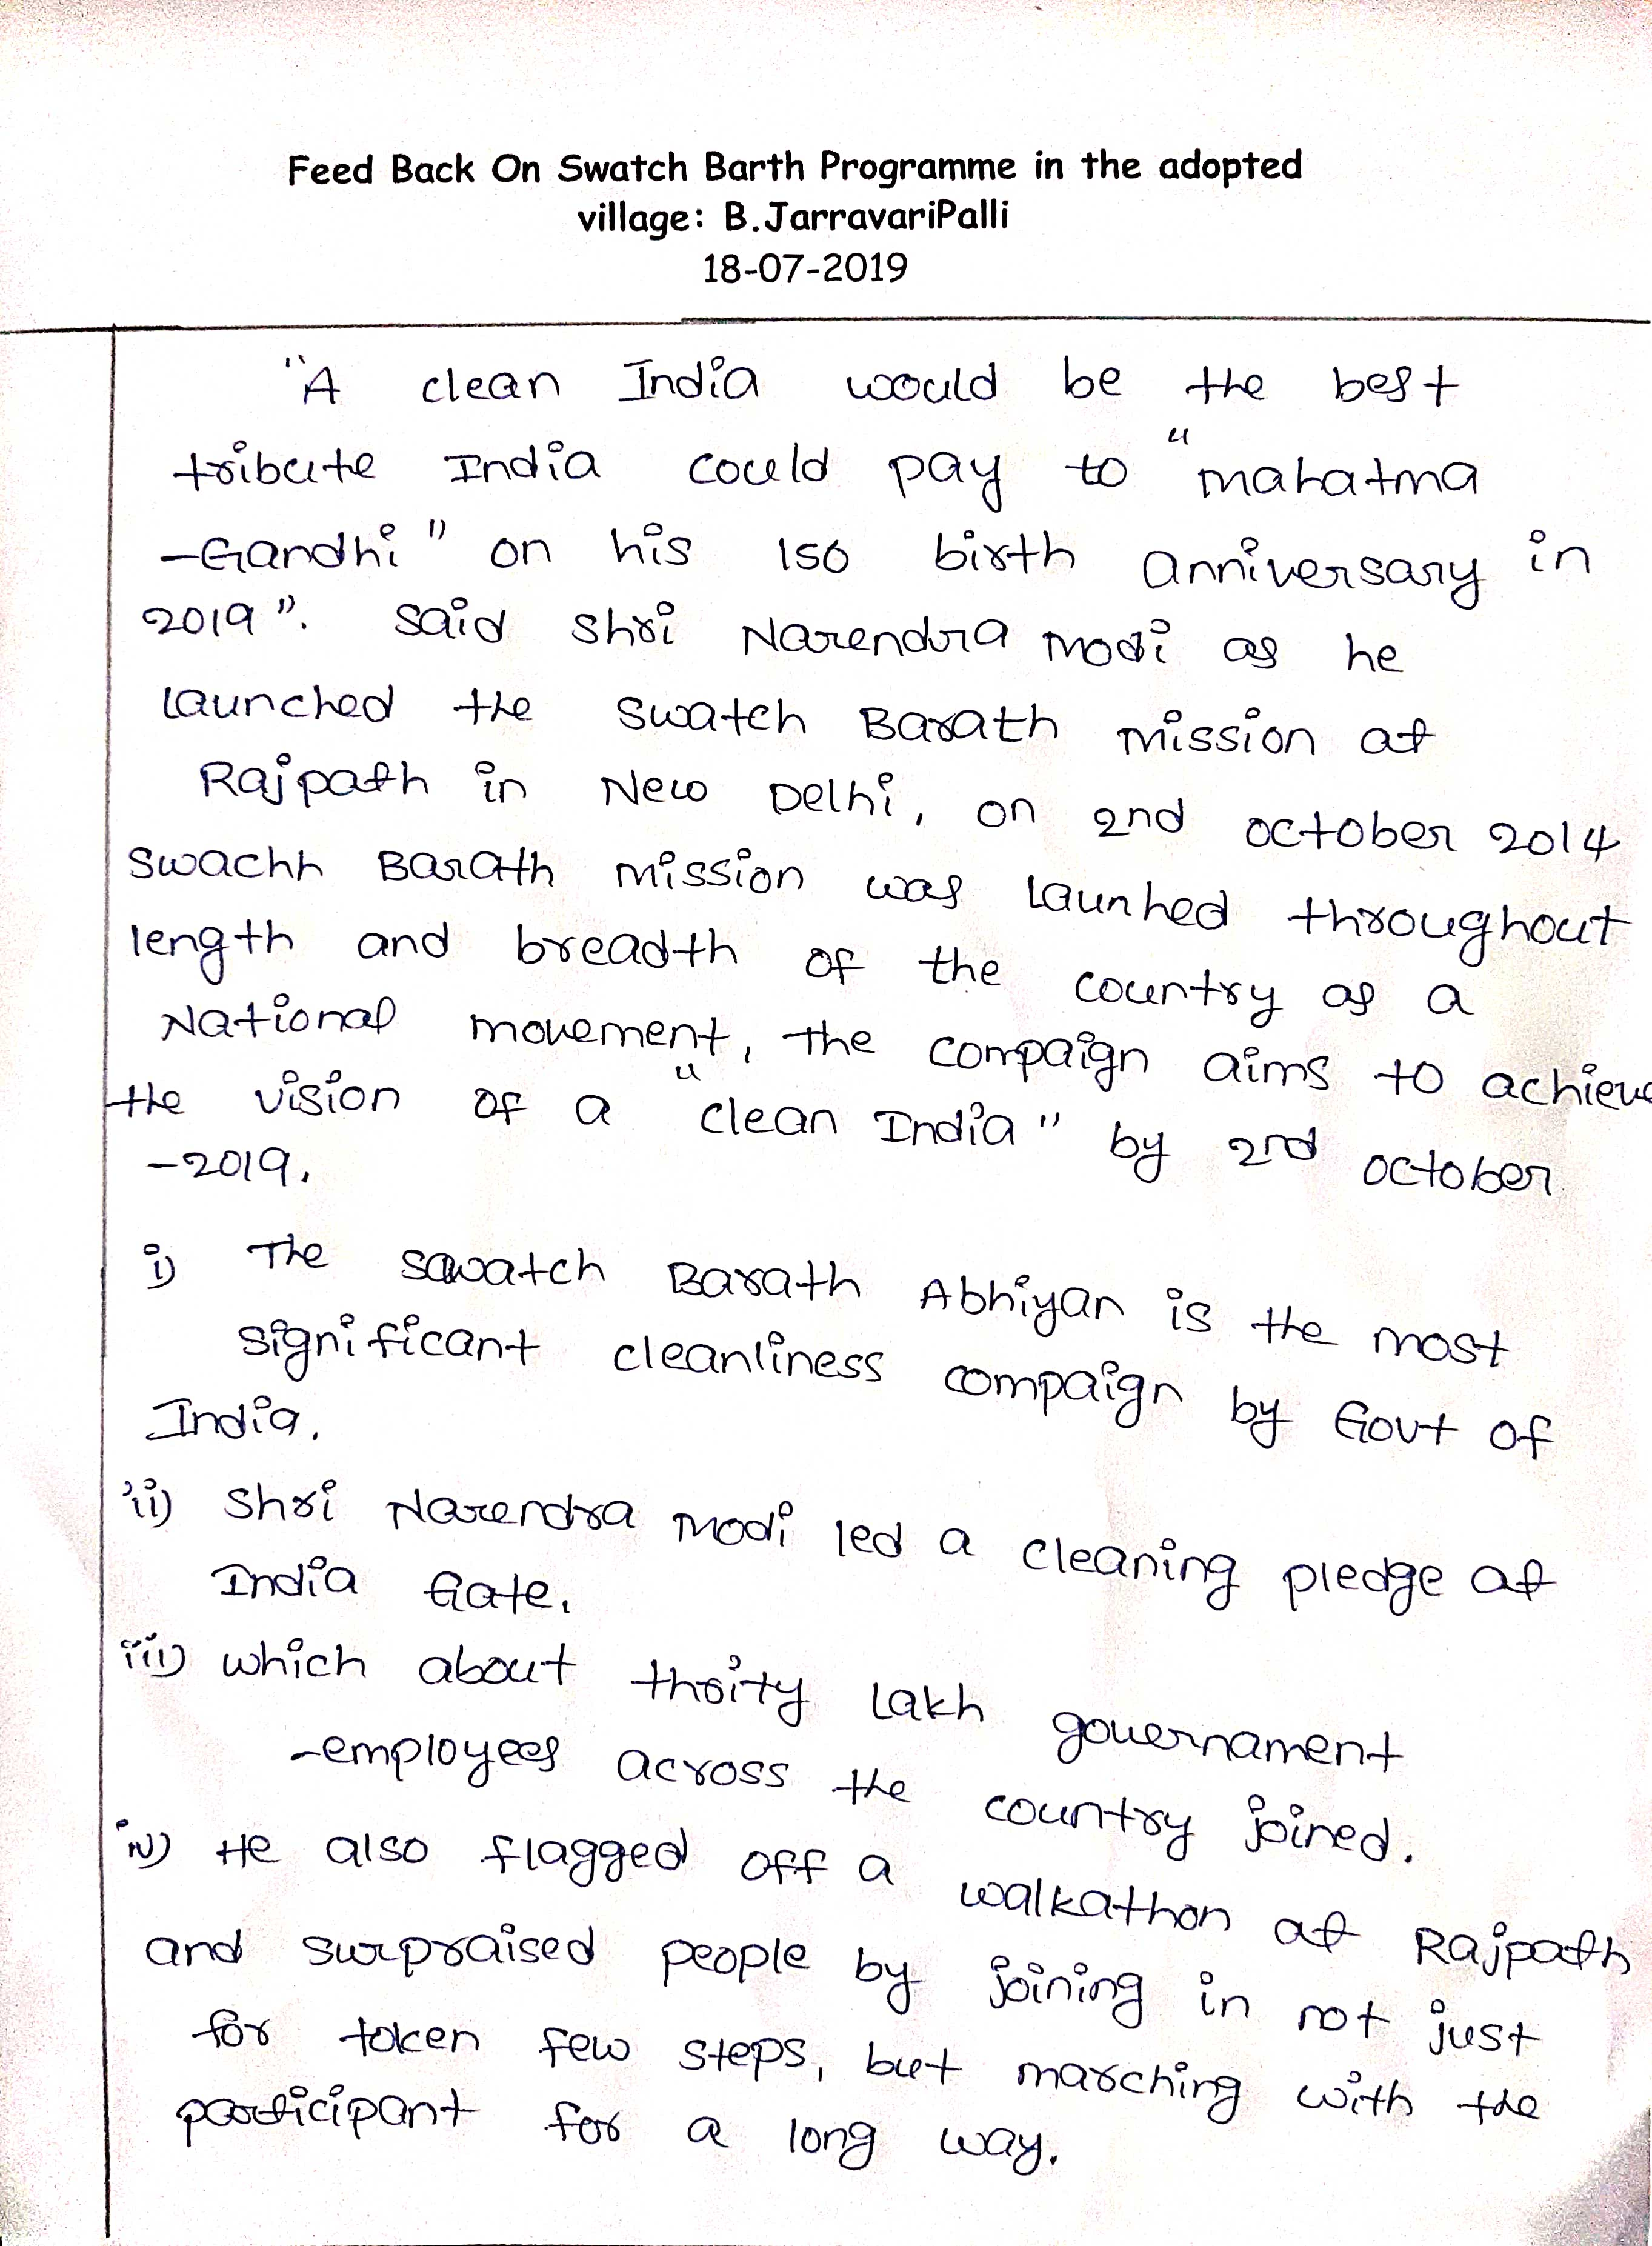 Feed Back On Swatch Barth Programme in the adopted
village: B.JarravariPalli
18-07-2019
"A clean India would be the best
tribute India could pay to "mahatma
-Gandhi" on his 150 birth anniversary in
2019". Said Shri Narendra modi as he
launched the Swatch Barath mission at
Rajpath in New Delhi, on 2nd october 2014
Swachh Barath mission was launhed throughout
length and breadth of the country as a
National movement, the compaign aims to achieve
the vision of a "clean India" by 2nd october
-2019.
i) The Sawatch Barath Abhiyan is the most
significant cleanliness compaign by Govt of
India.
ii) Shri Narendra modi led a cleaning pledge at
India Gate.
iii) which about thrity lakh governament
-employees across the country joined.
iv) He also flagged off a walkathon at Rajpath
and surpraised people by joining in not just
for token few steps, but marching with the
participant for a long way.